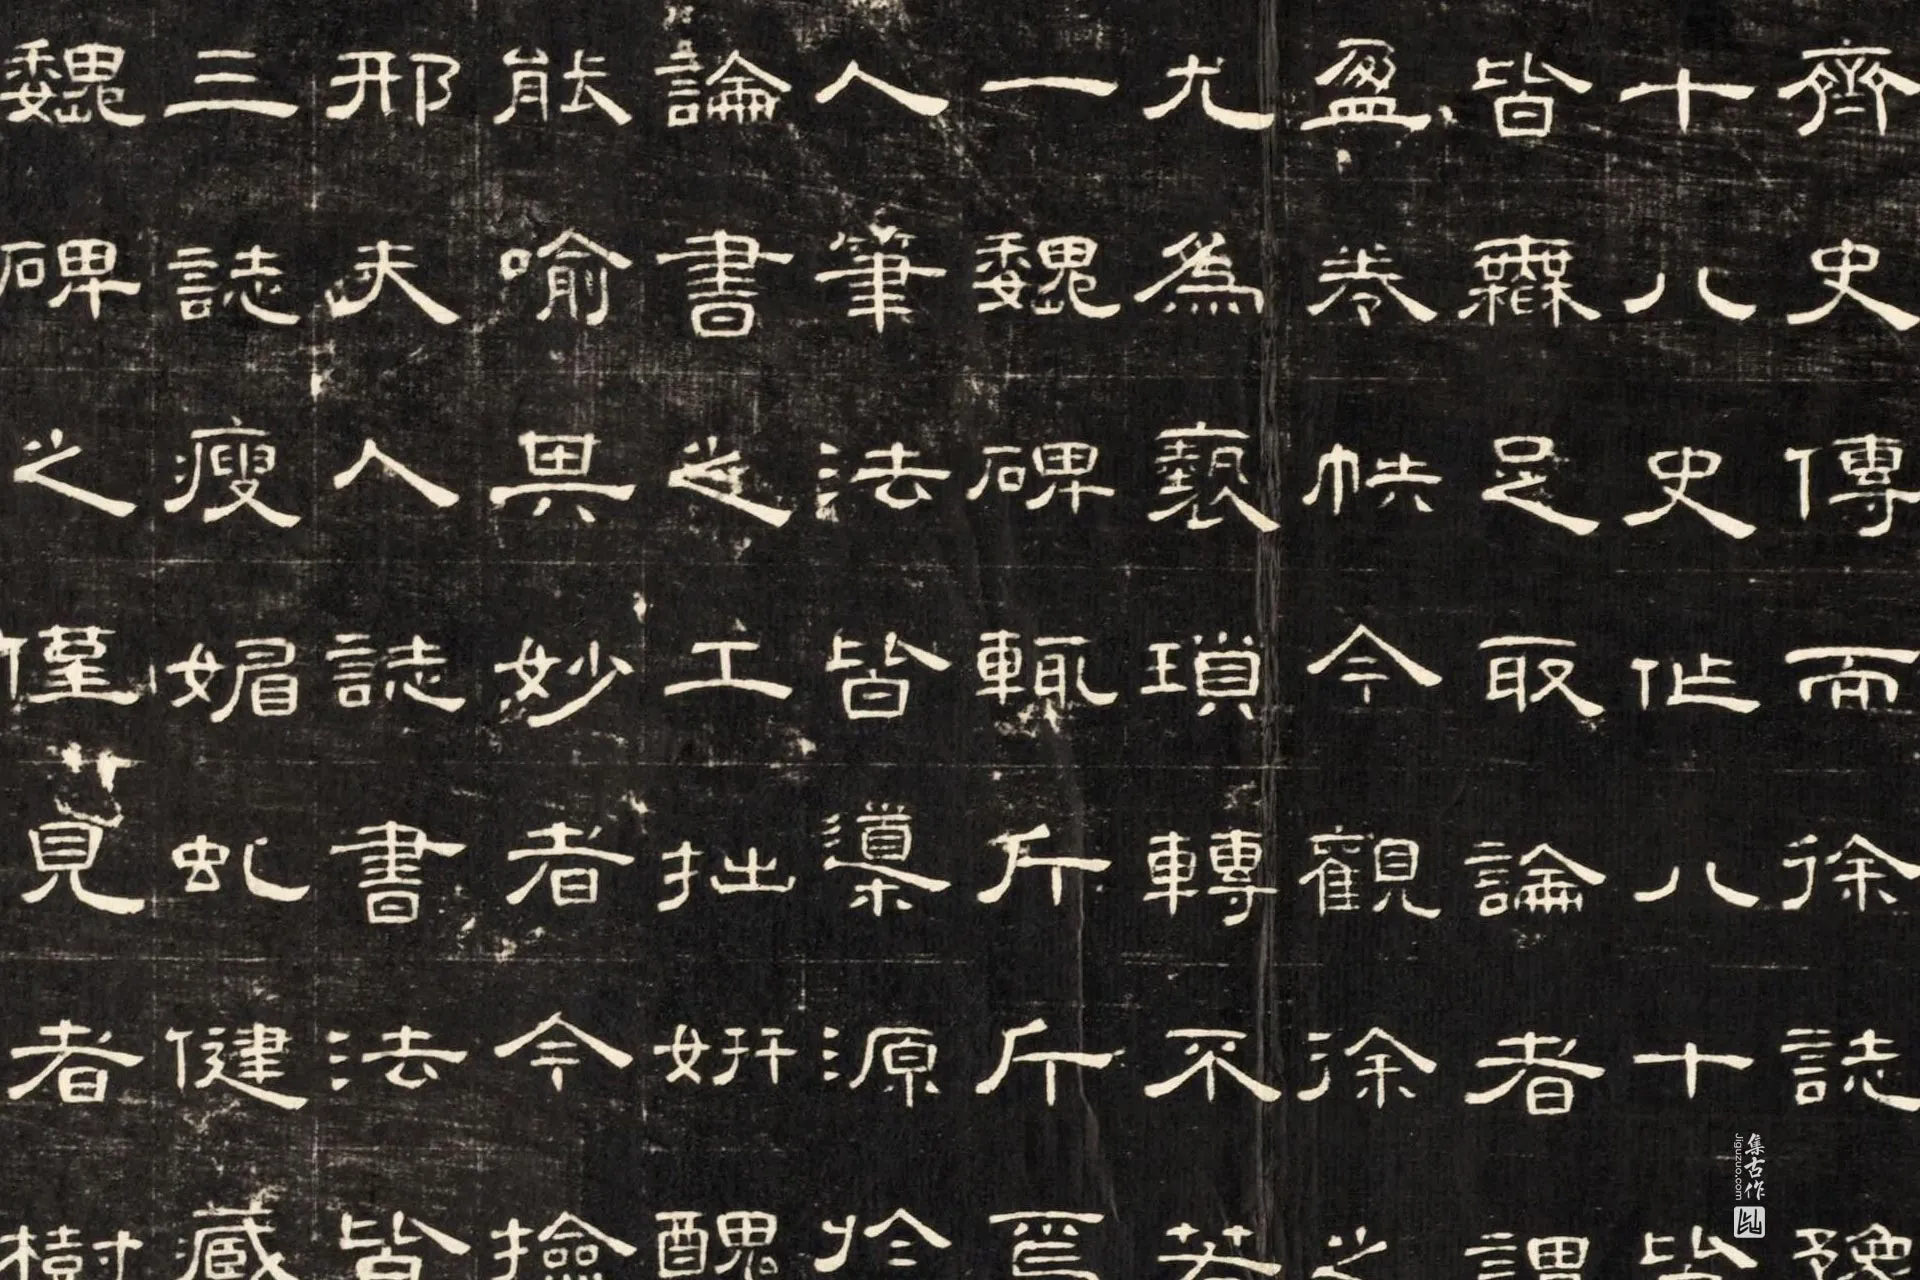 齊史傳而徐誌豫
十八史作八十皆
皆霧足取論者謂
盈卷帙今觀涂之
尤為褻瑣轉不若
一魏碑輒斤斤焉
人筆法皆導源於
論書之工拙妍醜
能喻其妙者今撿
邢夫人誌書法皆
三誌瘦媚虬健藏
魏碑之僅見者樹
集古作
Jiguzuo.com